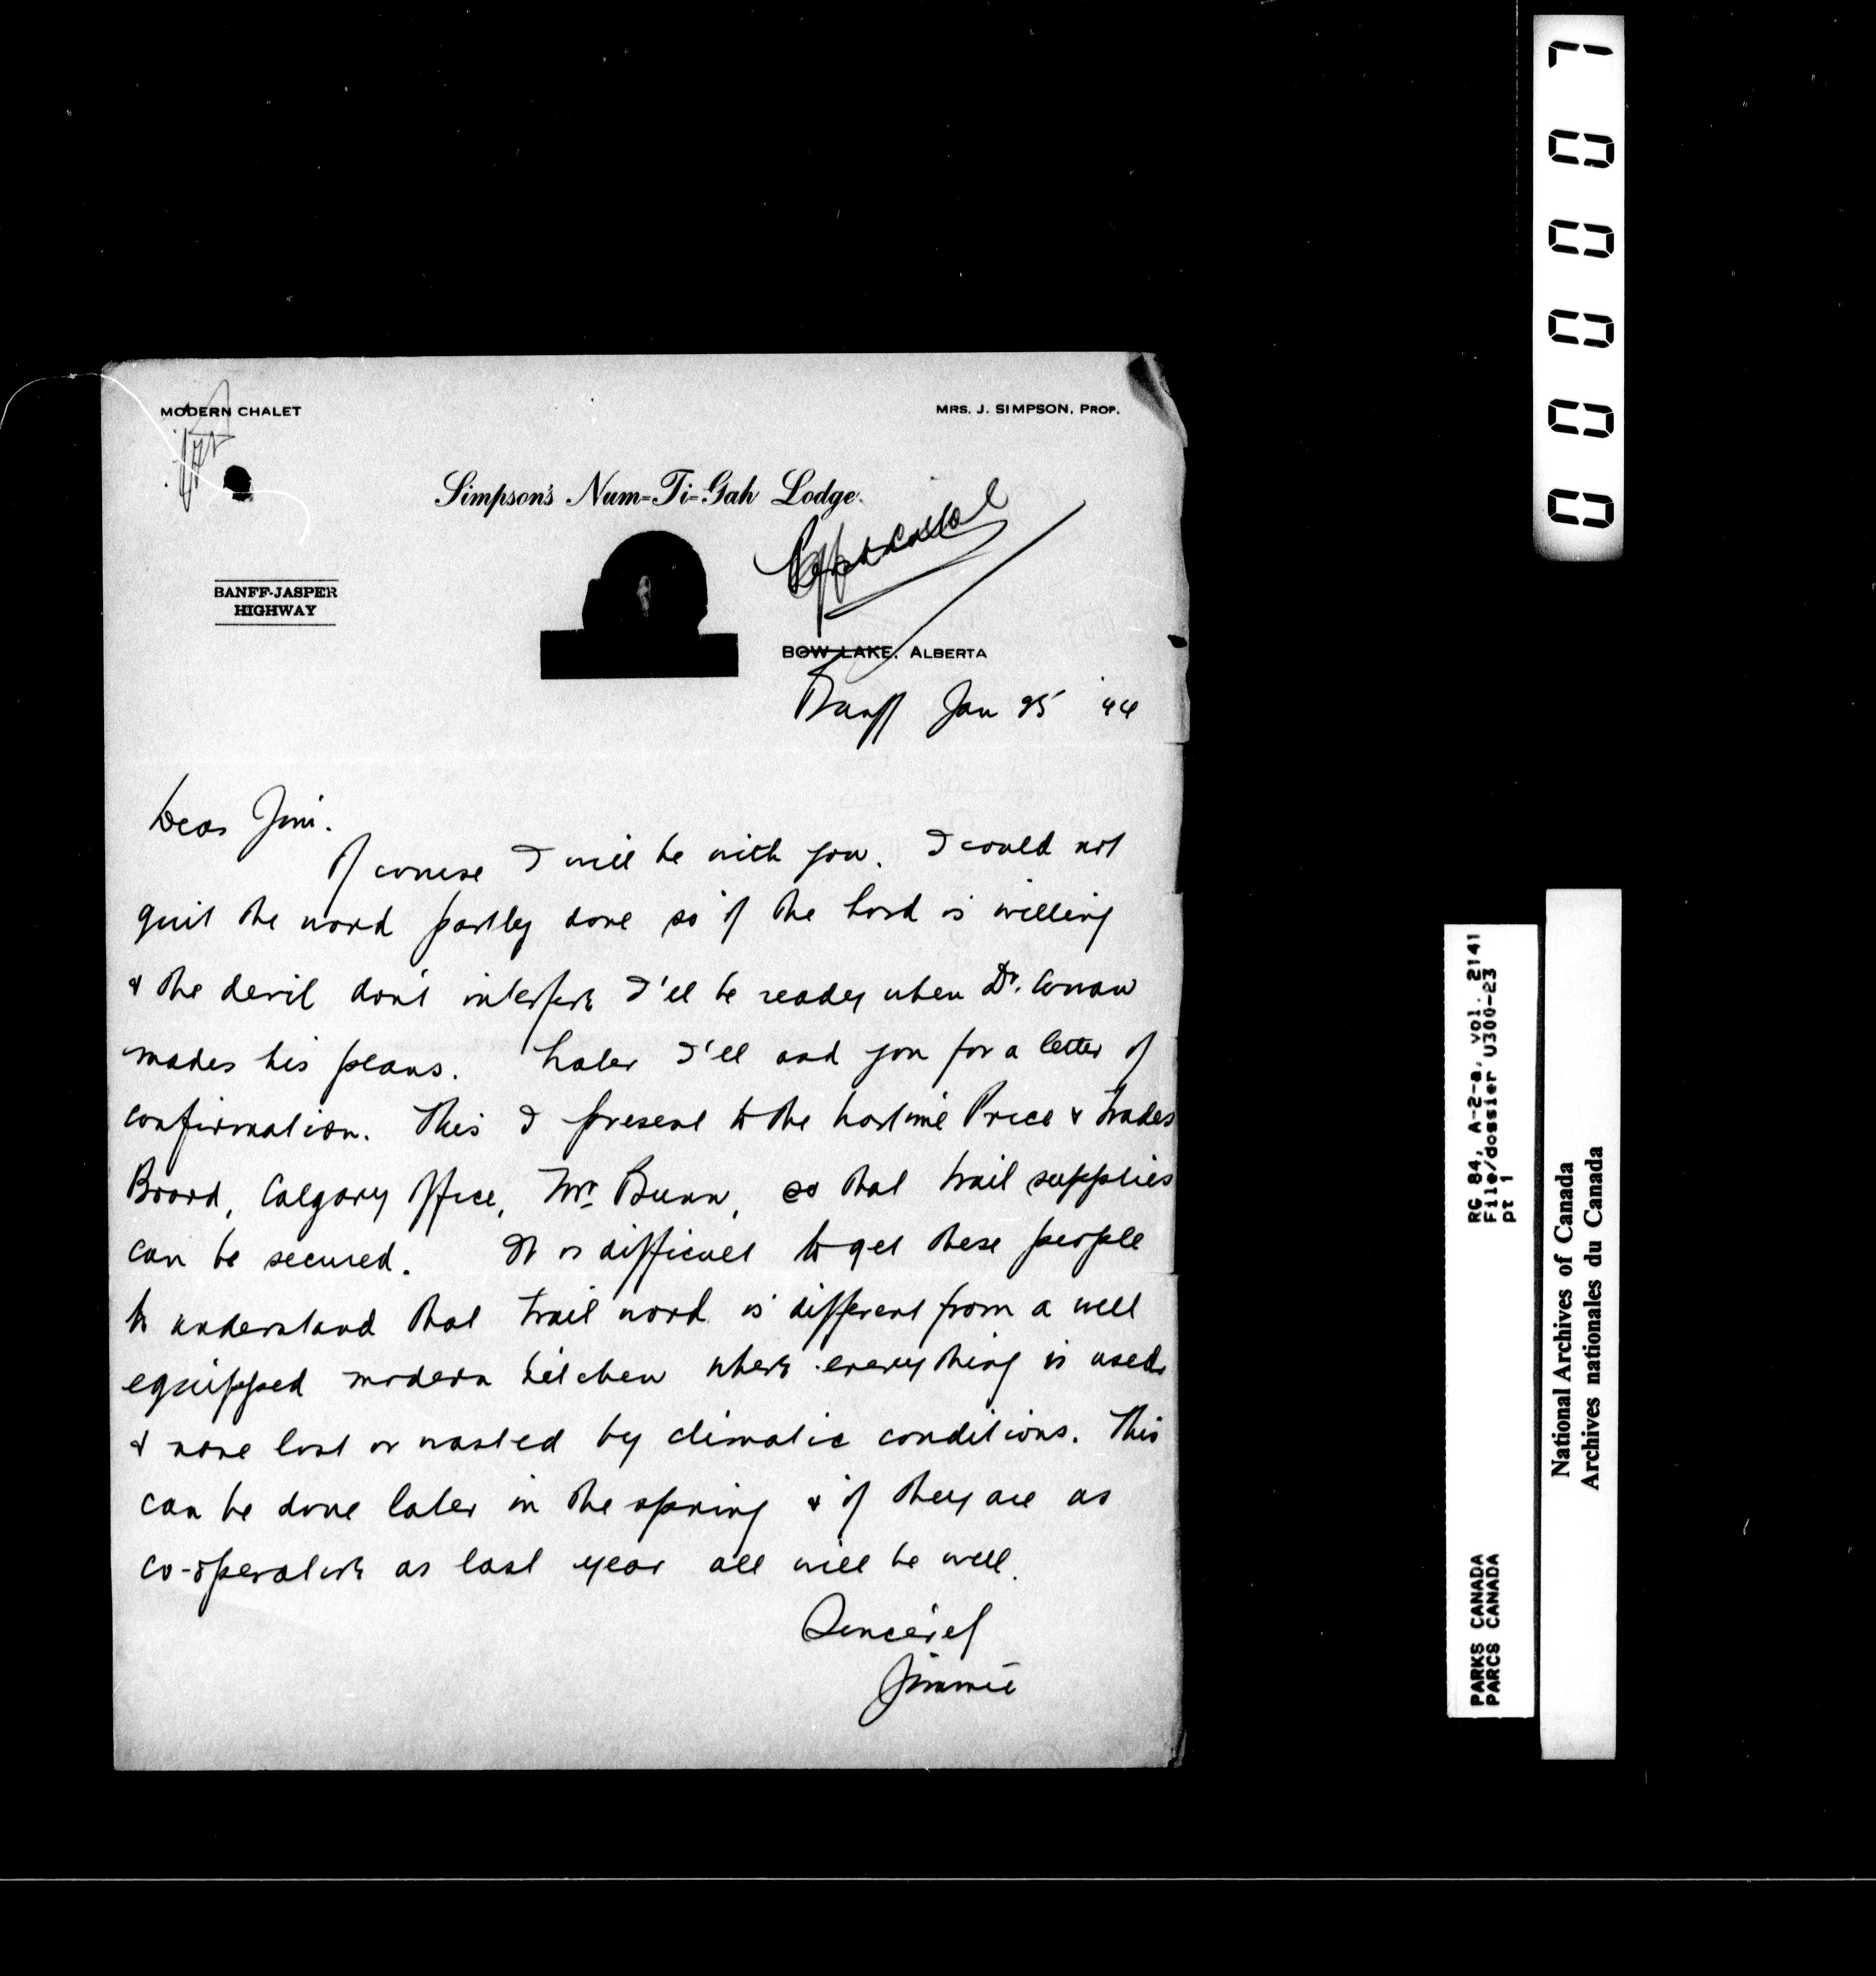 MODERN CHALET
MRS. J. SIMPSON, PROP.
Simpson's Num-Ti-Gah Lodge.
BANFF-JASPER
HIGHWAY
BOW LAKE, ALBERTA
Banff Jan 25 '44
Dear Jim.
Of course I will be with you. I could not
quit the work partly done so if the Lord is willing
& the devil don't interfere I'll be ready when Dr.
makes his plans. Later I'll ask you for a letter of
confirmation. This I present to the Wartime Price & Trades
Board, Calgary Office, Mr. Bunn, so that trail supplies
can be secured. It is difficult to get these people
to understand that trail work is different from a well
equipped modern kitchen where everything is used
& none lost or wasted by climatic conditions. This
can be done later in the spring & if they are as
co-operative as last year all will be well.
Sincerely
Jimmie
000007
RG 84, A-2-a, vol. 2141
File/dossier U300-23
pt 1
PARKS CANADA
PARCS CANADA
National Archives of Canada
Archives nationales du Canada